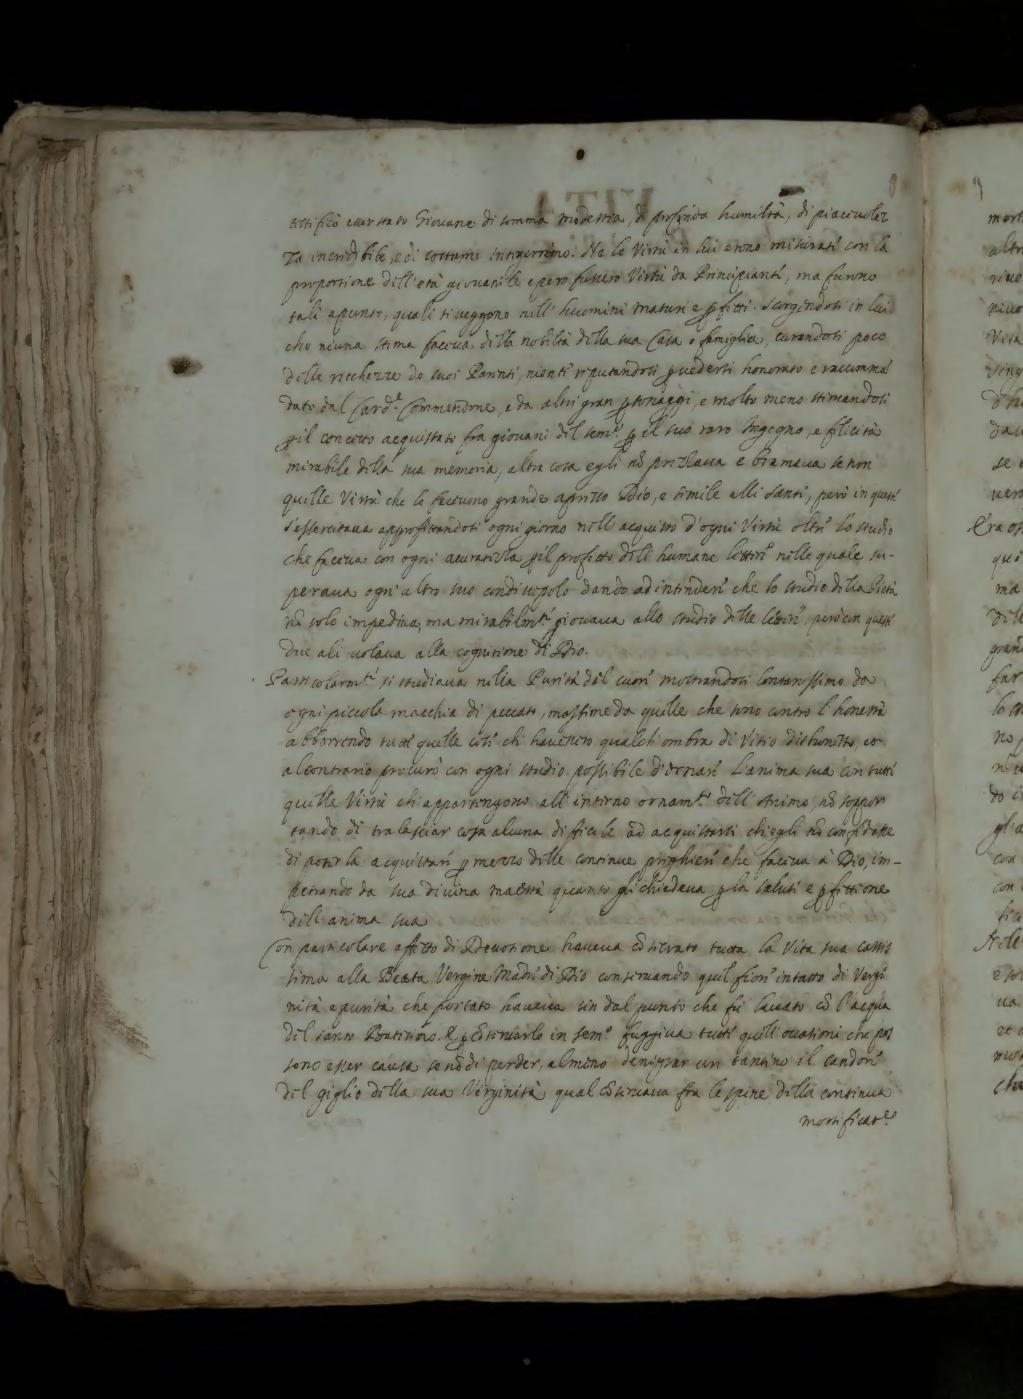 tificò esser stato Giovane di somma modestia, di profonda humiltà, di piacevolez
za incredibile, e di costumi integerrimo. Ne le Virtù in lui erono misurate con la
proportione dell'età giovanile e però fussero Virtù da Principianti, ma furono
tali apunto, quali si veggono nell'huomini maturi e pfetti. Scorgendosi in lui
che niuna stima faceva della nobiltà della sua Casa e famiglia, curandosi poco
delle ricchezze de suoi Parenti, niente reputandosi p vedersi honorato e racumman
dato dal Card.e Commendone, e da altri gran psonaggi, e molto meno stimandosi
p il concetto acquistato fra giovani del sem.o p il suo raro Ingegno, e felicità
mirabile della sua memoria, altra cosa egli nõ prezzava e bramava se non
quelle Virtù che lo facevono grande apresso Dio, e simile alli Santi, però in queste
s'essercitava approfittandosi ogni giorno nell'acquisto d'ogni Virtù oltre lo studio
che faceva con ogni accuratezza p il profitto dell'humane lettere nelle quale su-
perava ogni altro suo condiscepolo dando ad intendere che lo studio della Pietà
nõ solo impediva, ma mirabilm.te giovava allo studio delle lettere, però con queste
due ali volava alla cognitione di Dio.
Particolarm.te si studiava nella Purità del cuore mostrandosi lontanissimo da
ogni piccola macchia di peccato, massime da quelle che sono contro l'honestà
abborrendo tutte quelle cose che havessero qualch'ombra di Vitio dishonesto, et
al contrario procurò con ogni studio possibile d'ornare l'anima sua con tutte
quelle Virtù che appartengono all'interno ornam.to dell'Animo, nõ soppor
tando di tralasciar cosa alcuna difficile ad acquistarsi, ch'egli nõ confidasse
di poterla acquistare p mezzo delle continue preghiere che faceva à Dio, im-
petrando da sua divina maestà quanto gli chiedeva p la salute e pfettione
dell'anima sua
Con particolare affetto di Devotione haveva cõsecrato tutta la Vita sua castis
sima alla Beata Vergine Madre di Dio conservando quel fiore intatto di Vergi
nità e purità che portato haveva sin dal punto che fù lavato cõ l'acqua
del santo Battesimo. E p cõservarlo in sem.o fuggiva tutte quell'occasioni che pos
sono esser causa se nõ di perder, almeno denigrar un tantino il candore
del giglio della sua Verginità qual cõservava fra le spine della continua
mortificat.e